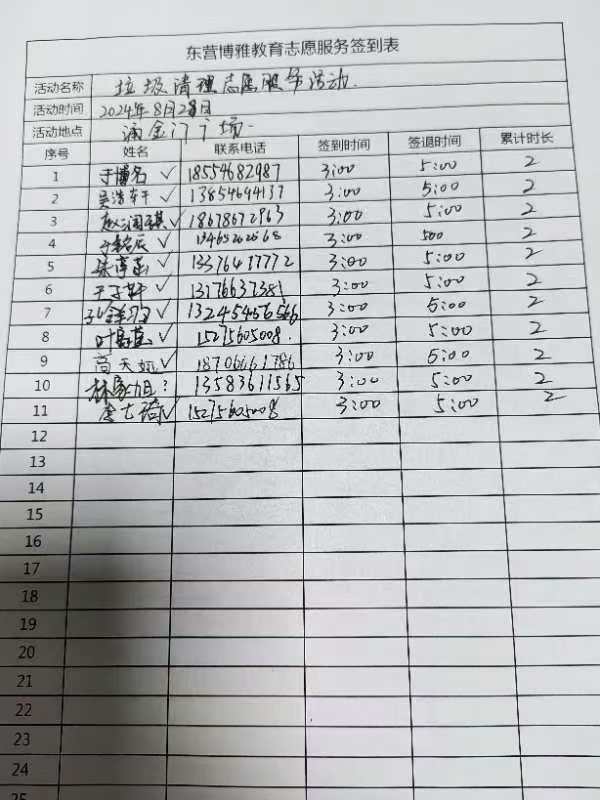 东营博雅教育志愿服务签到表
活动名称 垃圾清理志愿服务活动.
活动时间 2024年8月28日
活动地点 涌金门广场.
序号 姓名 联系电话 签到时间 签退时间 累计时长
1 于博名 ✓ 18554682987 3:00 5:00 2
2 吴浩轩 ✓ 13854694137 3:00 5:00 2
3 赵润祺 ✓ 18678672963 3:00 5:00 2
4 于铭辰 ✓ 13465262068 3:00 500 2
5 ✓ 13376417772 3:00 5:00 2
6 于子轩 ✓ 13176637381 3:00 5:00 2
7 ✓ 13245456566 3:00 5:00 2
8 ✓ 15275605008. 3:00 5:00 2
9 高天妮 ✓ 18706661786 3:00 5:00 2
10 林家旭 ? 13583611565 3:00 5:00 2
11 ✓ 15275605008 3:00 5:00 2
12
13
14
15
16
17
18
19
20
21
22
23
24
25